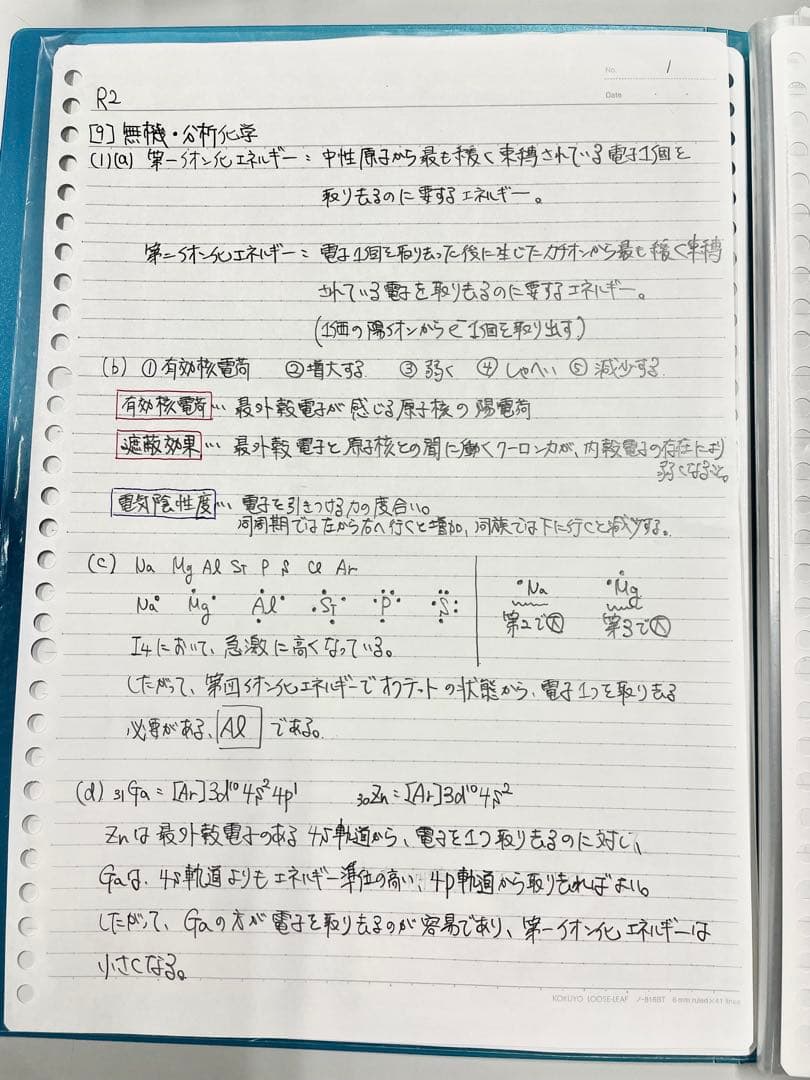 No. 1
Date
R2
[9] 無機・分析化学
(1)(a) 第一イオン化エネルギー：中性原子から最も緩く束縛されている電子1個を
取り去るのに要するエネルギー。
第二イオン化エネルギー：電子1個を取り去った後に生じたカチオンから最も緩く束縛
されている電子を取り去るのに要するエネルギー。
(1価の陽イオンからe⁻1個を取り出す)
(b) ①有効核電荷 ②増大する ③弱く ④しゃへい ⑤減少する
有効核電荷… 最外殻電子が感じる原子核の陽電荷
遮蔽効果… 最外殻電子と原子核との間に働くクーロン力が、内殻電子の存在により
弱くなること。
電気陰性度… 電子を引きつける力の度合い。
同周期では左から右へ行くと増加, 同族では下に行くと減少する。
(c) Na Mg Al Si P S Cl Ar
Na Mg Al Si P S
I₄において、急激に高くなっている。
したがって、第四イオン化エネルギーでオクテットの状態から、電子1つを取り去る
必要がある、Alである。
Na Mg
第2で大 第3で大
(d) ₃₁Ga = [Ar]3d¹⁰4s²4p¹ ₃₀Zn = [Ar]3d¹⁰4s²
Znは最外殻電子のある4s軌道から、電子を1つ取り去るのに対し、
Gaは、4s軌道よりもエネルギー準位の高い、4p軌道から取り去ればよい。
したがって、Gaの方が電子を取り去るのが容易であり、第一イオン化エネルギーは
小さくなる。
KOKUYO LOOSE-LEAF ノ-816BT 6mm ruled×41 lines